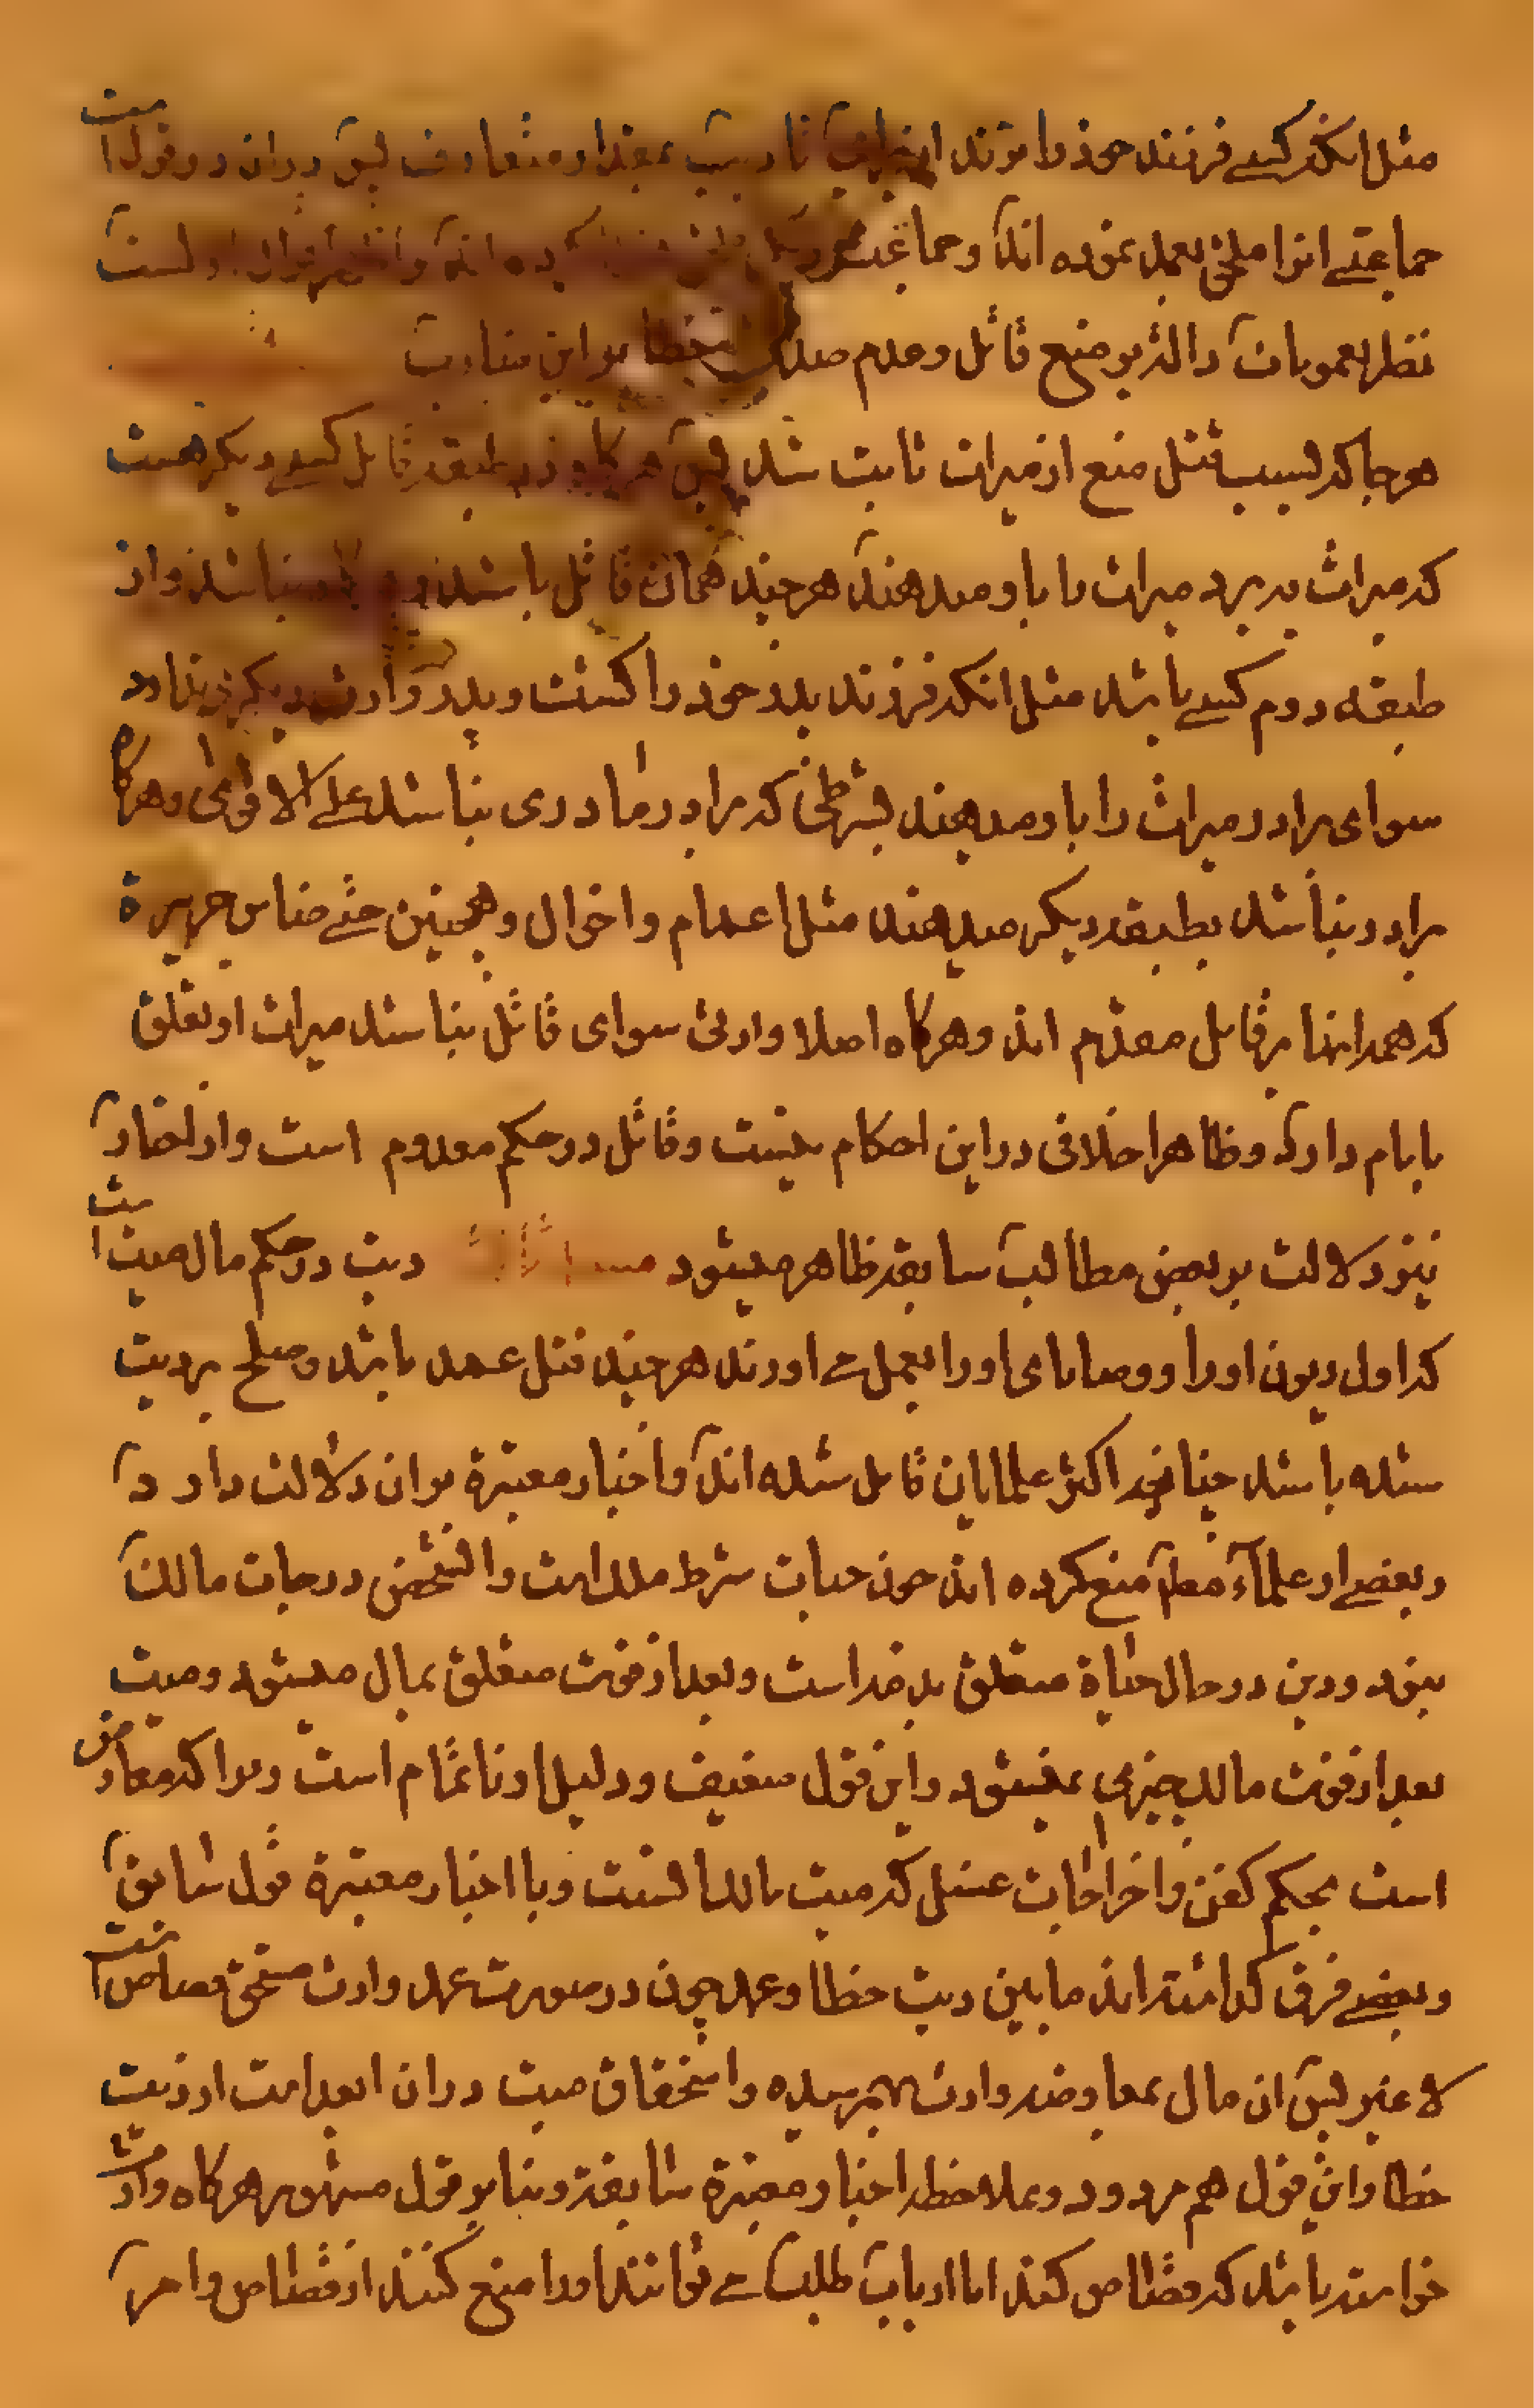 مثل انکه کسے فرزند خود را بزند از برای تادیب بمقدار متعارف پس دران دو قول است
جماعتے انرا ملحق بعمد نموده اند و جماعتے کرده اند و اظهر قول اولست
نظر بعمومات داله بر منع قاتل و عدم صدق خطا بر این مناسب
هر جا که بسبب قتل منع از میراث ثابت شد پس هرگاه در طبقه قاتل کسے دیگر هست
که میراث ببرد میراث را باو میدهند هرچند همان قاتل باشد و نباشد و از
طبقه دوم کسے باشد مثل انکه فرزند پدر خود را کشت و پدر وارث دیگر ندارد
سوای برادر میراث را باو میدهند بشرطی که برادر مادری نباشد علے الاقوای و هرگاه
برادر نباشد بطبقه دیگر میدهند مثل اعمام و اخوال و همچنین حتے ضامن جریرة
که همه اینها بر قاتل مقدم اند و هرگاه اصلا وارثی سوای قاتل نباشد میراث او تعلق
بامام دارد و ظاهرا خلافی در این احکام نیست و قاتل در حکم معدوم است و از اخبار
نیز دلالت بر بعض مطالب سابقه ظاهر میشود مسئلة ثالثة دیت در حکم مال میت است
که اول دیون او را و وصایای او را بعمل مے اورند هرچند قتل عمد باشد و صلح بر دیت
شده باشد چنانچه اکثر علمایان قایل شده اند و اخبار معتبرة بر ان دلالت دارد
و بعضے از علمآء معلم منع کرده اند چون حیات شرط ملک است و انشخص در حیات مالک
نبود و دین در حال حیاة متعلق بذمه است و بعد از فوت متعلق بمال میشود و میت
بعد از فوت مالک چیزی نمیشود و این قول ضعیف و دلیل او ناتمام است زیرا که معارض
است بحکم کفن و اخراجات غسل که میت مالک نیست و با اخبار معتبرة قول سابق
و بعضے فرق گذاشته اند ما بین دیت خطا و عمد چون در صورت عمد وارث مستحق قصاص است
لا غیر پس ان مال بمعاوضه وارث بهم رسیده و استحقاق میت در ان ابعد است از دیت
خطا و این قول هم مردود و بملاحظه اخبار معتبرة سابقه و بنا بر قول مشهور هرگاه وارث
خواسته باشد که قصاص کند ایا ارباب طلب مے توانند او را منع کنند از قصاص و امر